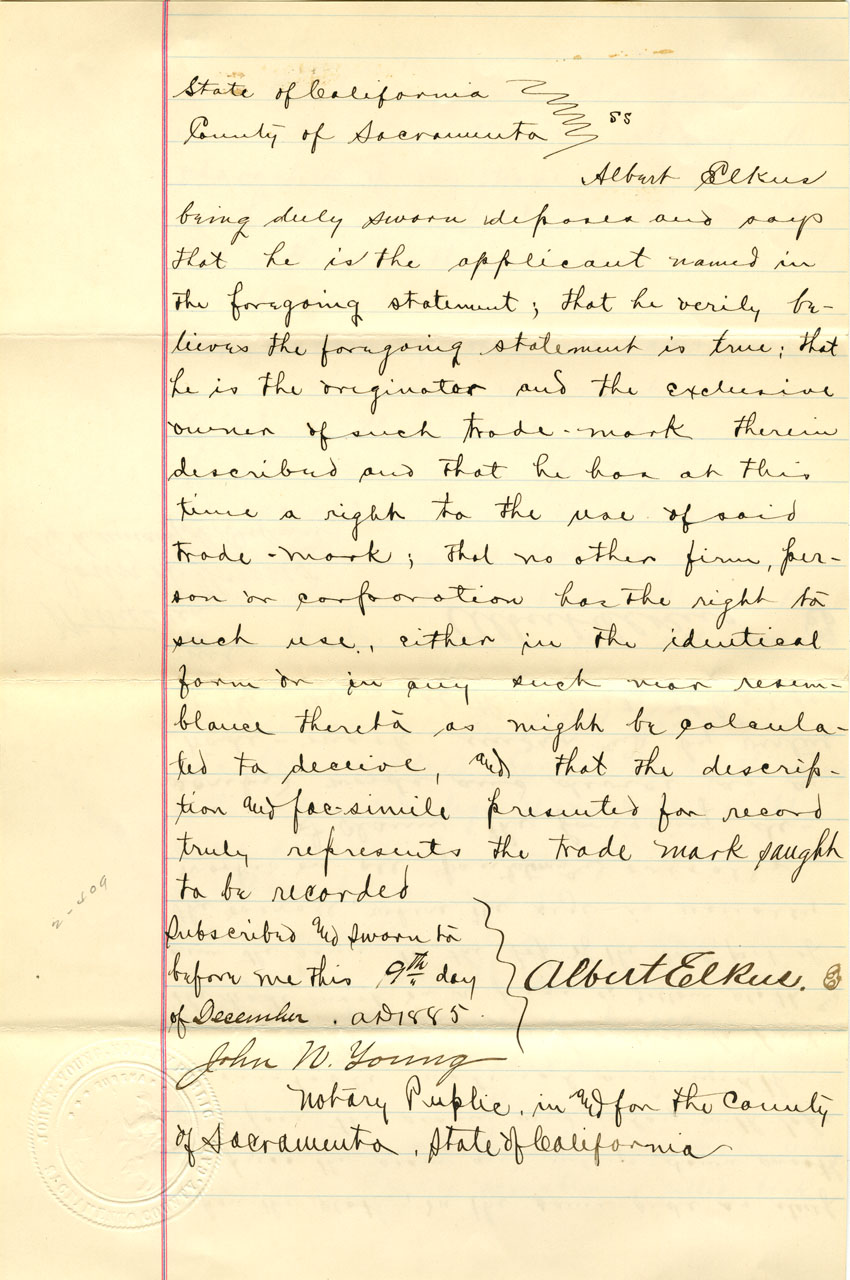 State of California
County of Sacramento ss
Albert Elkus
being duly sworn deposes and says
that he is the applicant named in
the foregoing statement; that he verily be-
lieves the foregoing statement is true; that
he is the originator and the exclusive
owner of such trade-mark therein
described and that he has at this
time a right to the use of said
trade-mark; that no other firm, per-
son or corporation has the right to
such use, either in the identical
form or in any such near resem-
blance thereto as might be calcula-
ted to deceive, and that the descrip-
tion and fac-simile presented for record
truly represents the trade mark saught
to be recorded
Subscribed and sworn to
before me this 9th day
of December. AD 1885.
Albert Elkus.
John W. Young
Notary Public, in and for the County
of Sacramento, State of California
2-409